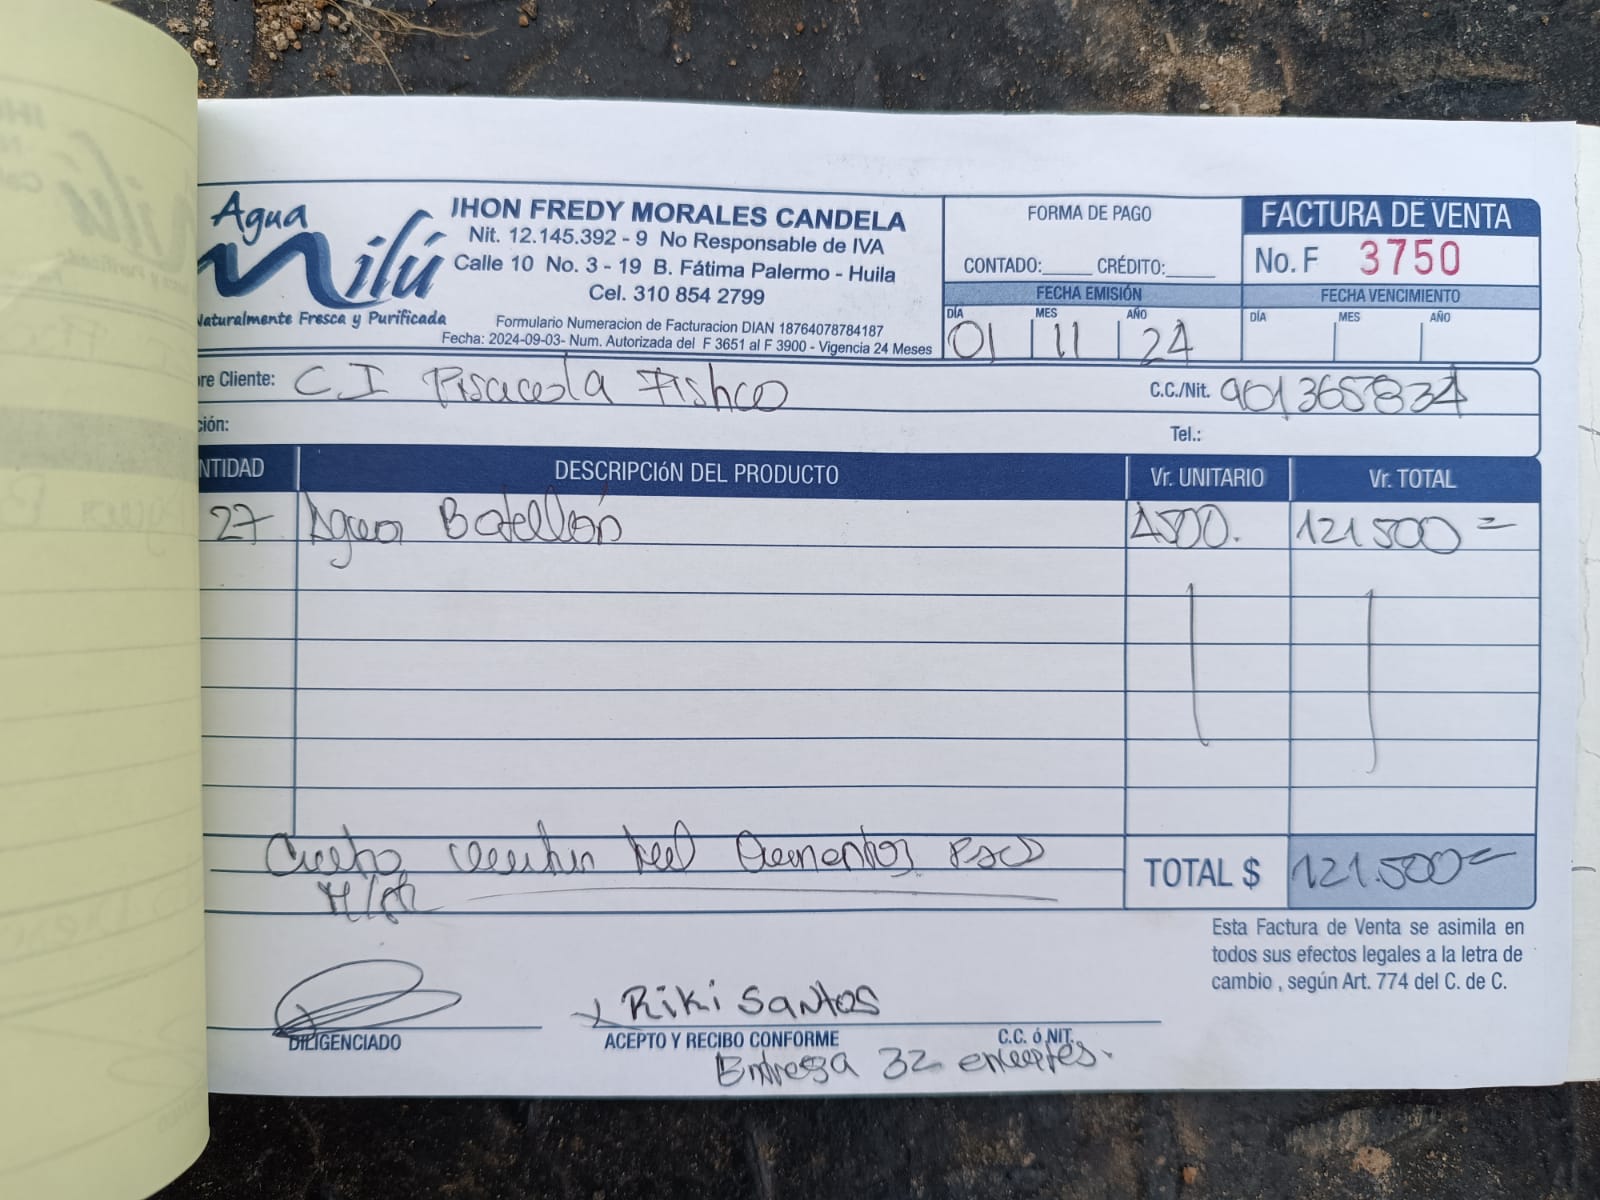 Agua
Milú
Naturalmente Fresca y Purificada
JHON FREDY MORALES CANDELA
Nit. 12.145.392 - 9 No Responsable de IVA
Calle 10 No. 3 - 19 B. Fátima Palermo - Huila
Cel. 310 854 2799
Formulario Numeracion de Facturacion DIAN 18764078784187
Fecha: 2024-09-03- Num. Autorizada del F 3651 al F 3900 - Vigencia 24 Meses
FORMA DE PAGO
CONTADO:_____ CRÉDITO:_____
FACTURA DE VENTA
No. F 3750
FECHA EMISIÓN
DÍA MES AÑO
01 11 24
FECHA VENCIMIENTO
DÍA MES AÑO
re Cliente: C.I Piscicola Fishco C.C./Nit. 901365834
ción: Tel.:
NTIDAD DESCRIPCIóN DEL PRODUCTO Vr. UNITARIO Vr. TOTAL
27 Agua Botellón 4500. 121500=
TOTAL $ 121.500=
Esta Factura de Venta se asimila en
todos sus efectos legales a la letra de
cambio , según Art. 774 del C. de C.
x Riki Santos
DILIGENCIADO ACEPTO Y RECIBO CONFORME C.C. ó NIT.
Entrega 32